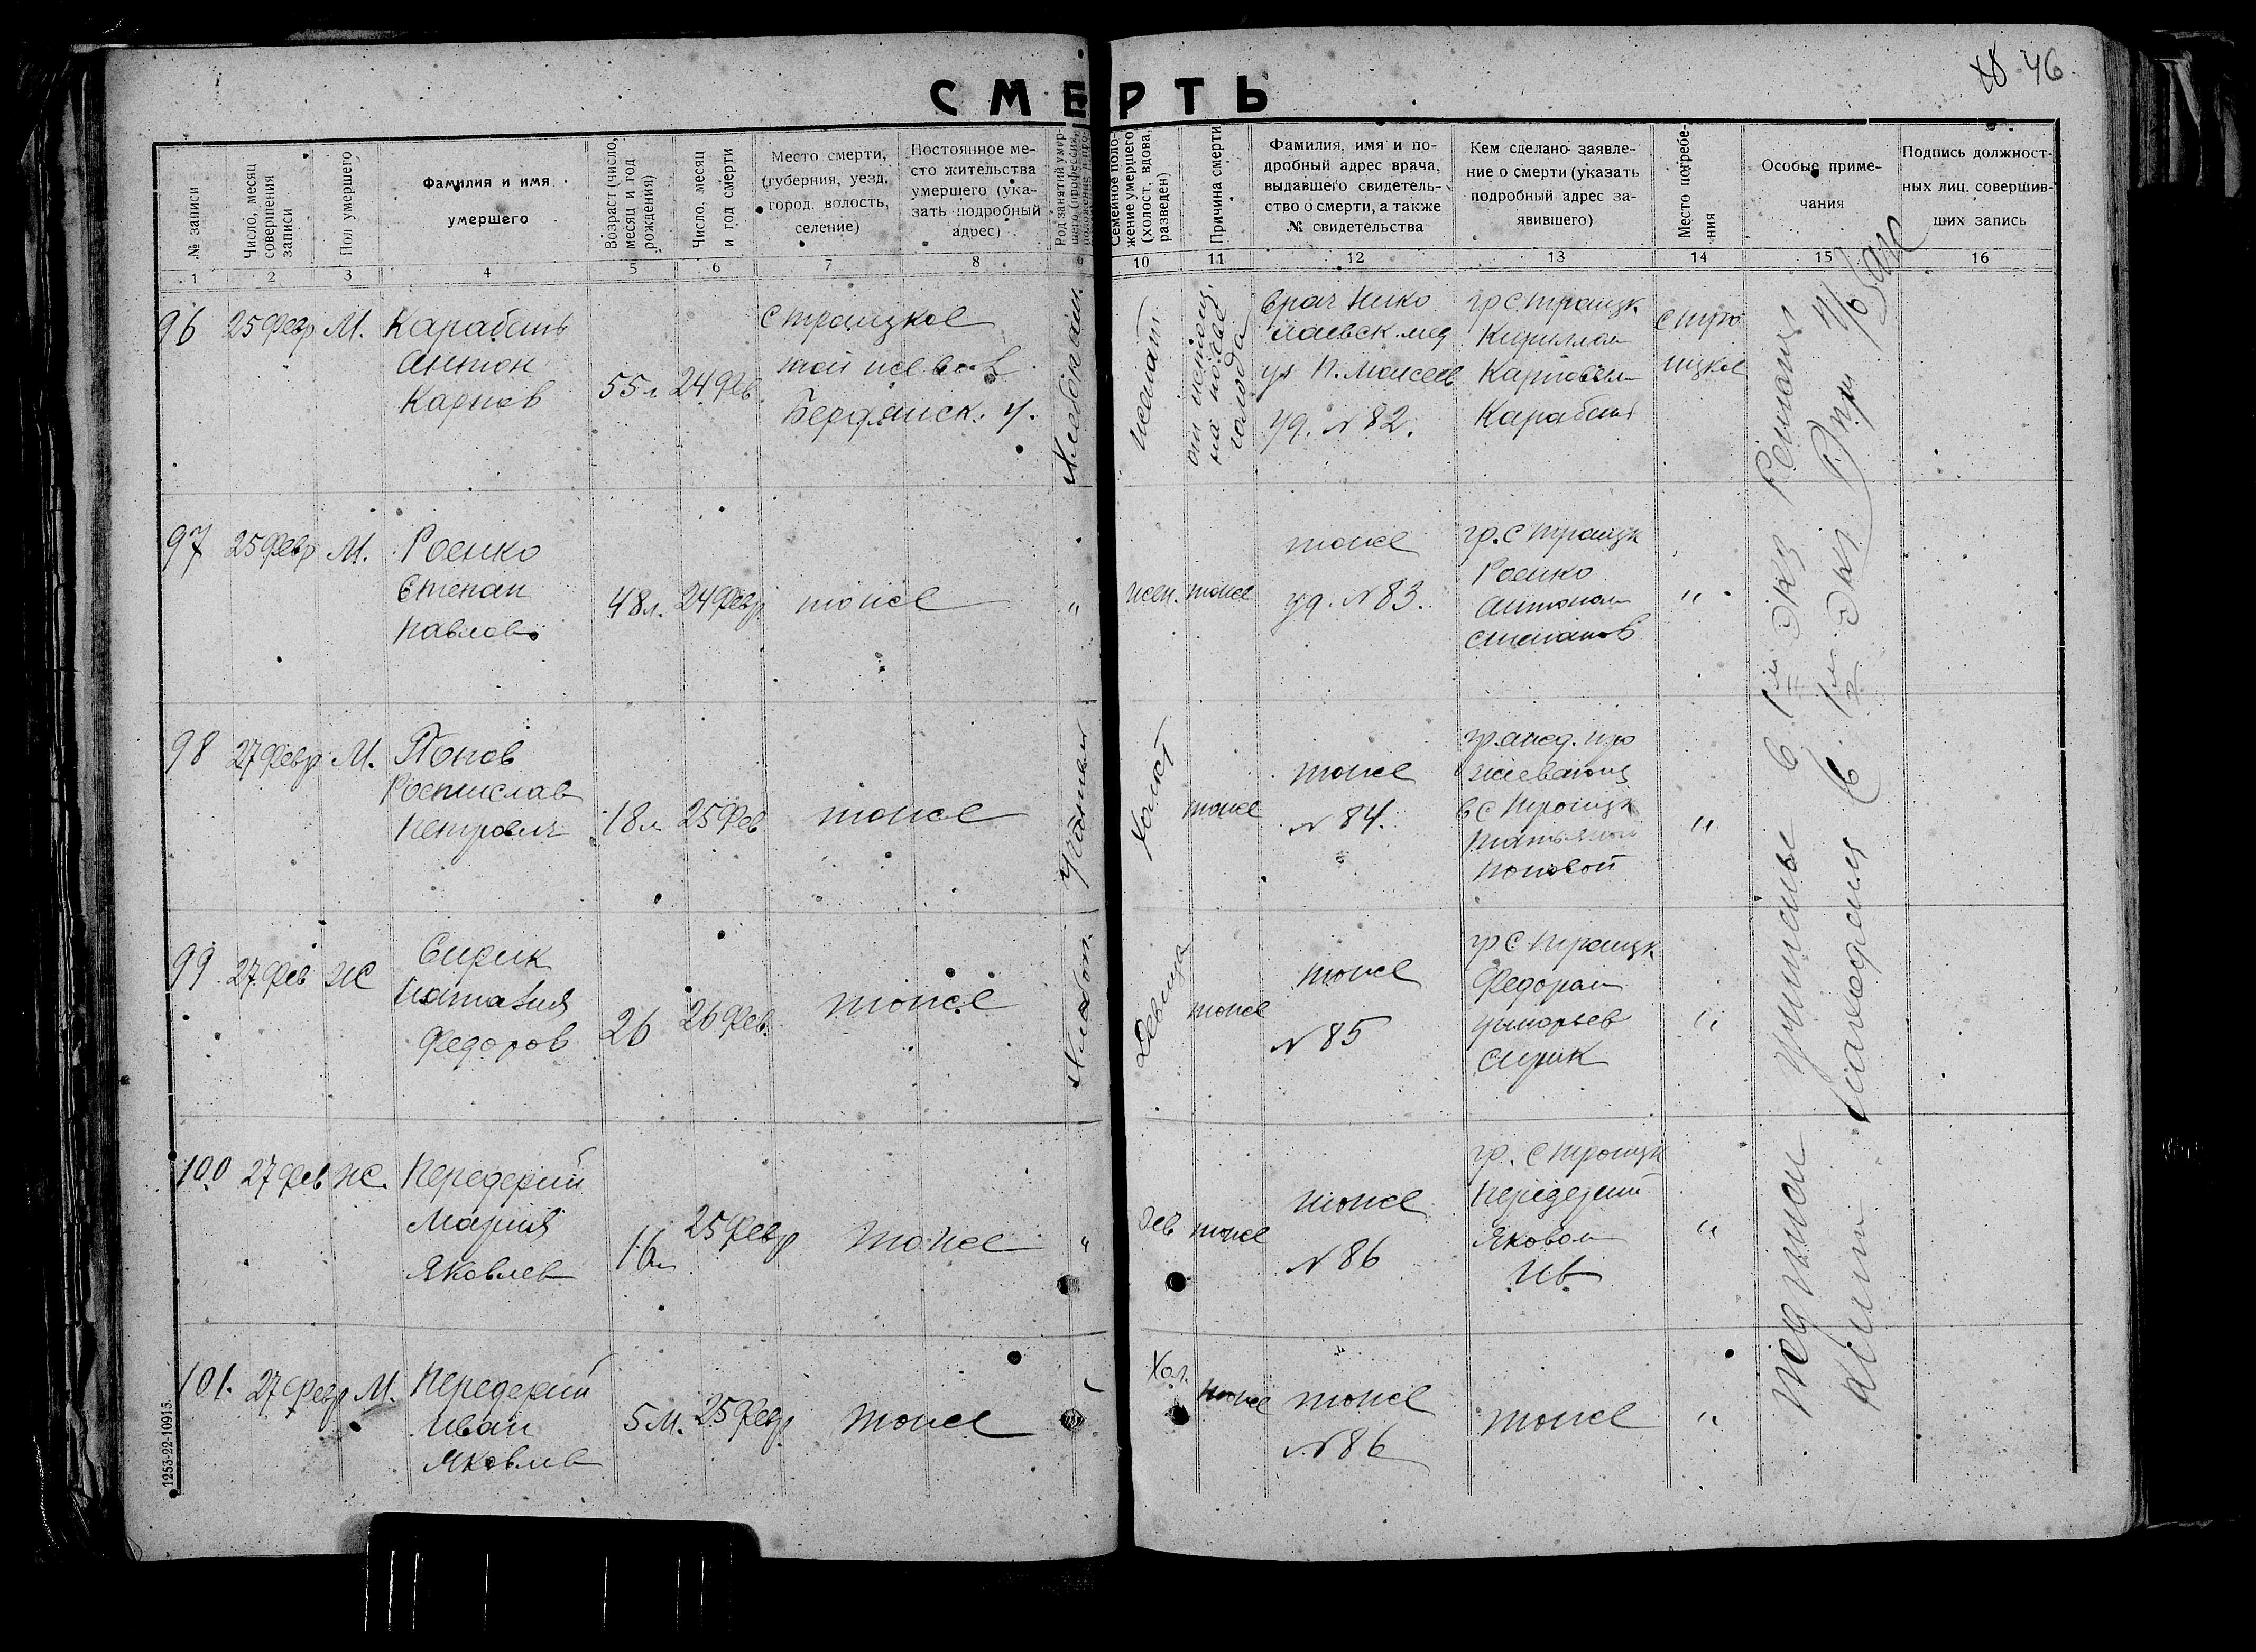 СМЕРТЬ
46
№ записи
Число, месяц
совершения
записи
Пол умершего
Фамилия и имя
умершего
Возраст (число,
месяц и год
рождения)
Число, месяц
и год смерти
Место смерти,
(губерния, уезд,
город, волость,
селение)
Постоянное ме-
сто жительства
умершего (ука-
зать подробный
адрес)
Род занятий умер-
Семейное поло-
жение умершего
(холост, вдова,
разведен)
Причина смерти
Фамилия, имя и по-
дробный адрес врача,
выдавшего свидетель-
ство о смерти, а также
№ свидетельства
Кем сделано заявле-
ние о смерти (указать
подробный адрес за-
явившего)
Место погребе-
ния
Особые приме-
чания
Подпись должност-
ных лиц, совершив-
ших запись
1 2 3 4 5 6 7 8 9 10 11 12 13 14 15 16
96 25 февр М.
Карабань
Антон
Карпов
55 л 24 фев.
с Троицкое
той же вол
Бердянск. у.
Хлебопаш.
женат
на почве
голода
врач Нико
лаевск мед
уч П. Моисеев
уд. № 82.
гр с Троицк
Кириллом
Карповым
Карабань
с Тро
ицкое
97 25 февр М.
Роенко
Степан
Павлов
48 л. 24 февр
тоже
"
жен. тоже
тоже
уд. № 83.
гр. с Троицк
Роенко
Антоном
Степанов
"
98 27 февр М.
Попов
Ростислав
Петрович
18 л 25 фев
тоже
Холост
тоже
тоже
№ 84.
в с Троицк
Поповой
"
99 27 фев Ж
Сирик
Наталия
Федоров
26 26 фев.
тоже
Хлебоп.
Девица
тоже
тоже
№ 85
гр с Троицк
Федором
Григорьев
Сирик
"
100 27 фев Ж.
Передерий
Мария
Яковлев
16 л 25 февр
тоже
"
дев тоже
тоже
№ 86
гр. с Троицк
Передерий
Яковом
Ив
"
101. 27 февр М.
Передерий
Иван
Яковлев
5 м. 25 февр
тоже
Хол.
тоже
тоже
№ 86
тоже
"
1253-22-10915.